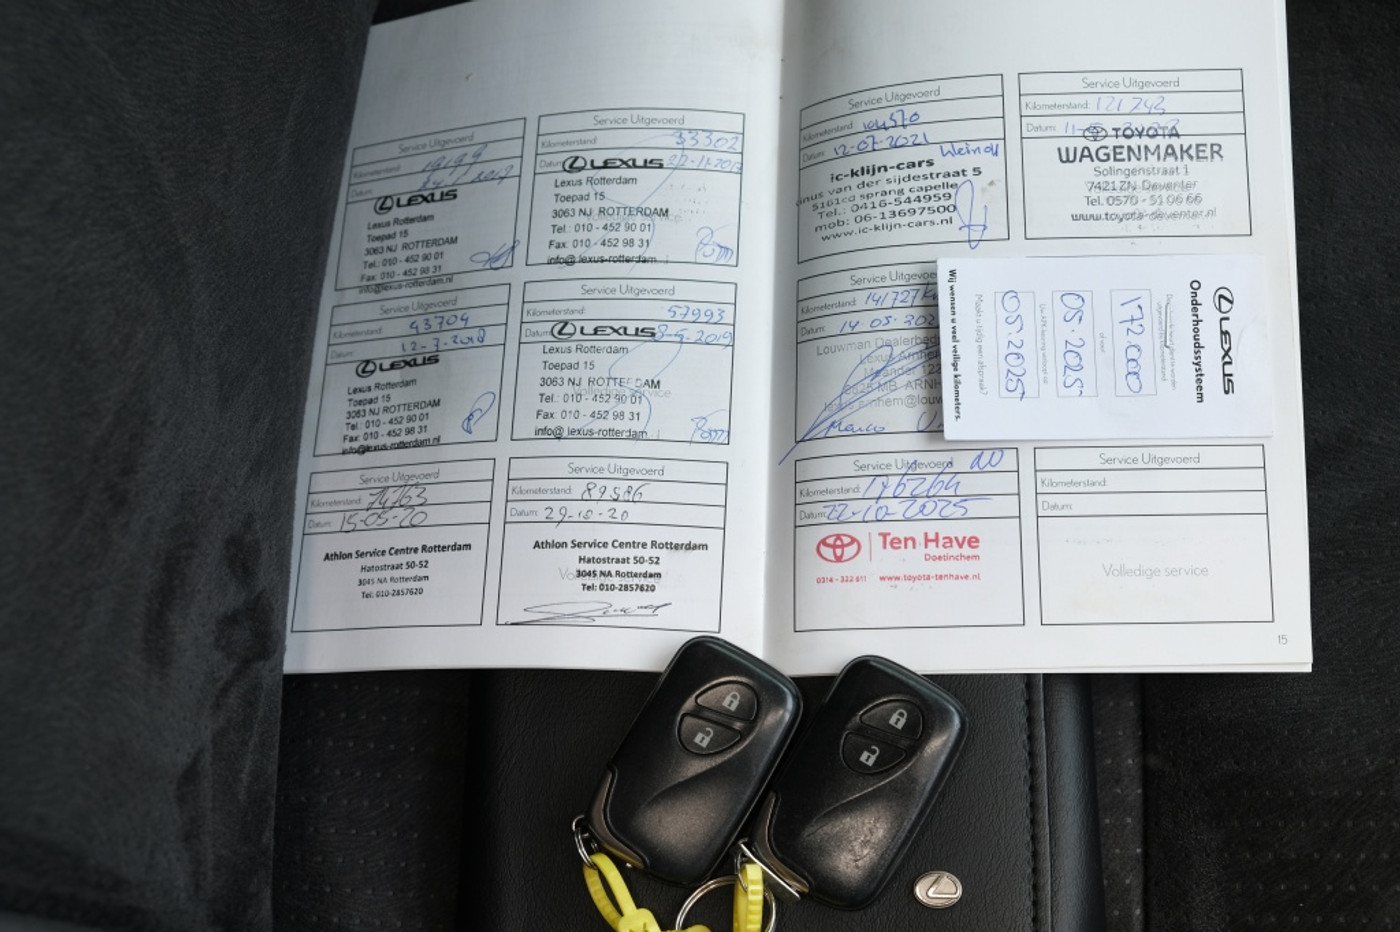 Service Uitgevoerd
Kilometerstand:
Datum:
LEXUS
Lexus Rotterdam
Toepad 15
3063 NJ ROTTERDAM
Tel.: 010 - 452 90 01
Fax: 010 - 452 98 31
info@lexus-rotterdam.nl
Service Uitgevoerd
Kilometerstand: 33302
Datum: 22-11-2017
LEXUS
Lexus Rotterdam
Toepad 15
3063 NJ ROTTERDAM
Tel.: 010 - 452 90 01
Fax: 010 - 452 98 31
info@lexus-rotterdam
Service Uitgevoerd
Kilometerstand: 43704
Datum: 12-7-2018
LEXUS
Lexus Rotterdam
Toepad 15
3063 NJ ROTTERDAM
Tel.: 010 - 452 90 01
Fax: 010 - 452 98 31
info@lexus-rotterdam.nl
Service Uitgevoerd
Kilometerstand: 57993
Datum: 8-5-2019
LEXUS
Lexus Rotterdam
Toepad 15
3063 NJ ROTTERDAM
Volledige service
Tel.: 010 - 452 90 01
Fax: 010 - 452 98 31
info@lexus-rotterdam
Service Uitgevoerd
Kilometerstand: 74763
Datum: 15-05-20
Athlon Service Centre Rotterdam
Hatostraat 50-52
3045 NA Rotterdam
Tel: 010-2857620
Service Uitgevoerd
Kilometerstand: 89586
Datum: 29-10-20
Athlon Service Centre Rotterdam
Hatostraat 50-52
3045 NA Rotterdam
Tel: 010-2857620
Service Uitgevoerd
Kilometerstand: 104570
Datum: 12-07-2021
ic-klijn-cars
inus van der sijdestraat 5
5161cd sprang capelle
Tel.: 0416-544959
mob: 06-13697500
www.ic-klijn-cars.nl
Service Uitgevoerd
Kilometerstand: 121743
Datum:
TOYOTA
WAGENMAKER
Solingenstraat 1
7421 ZN Deventer
Tel. 0570 - 51 06 66
www.toyota-deventer.nl
Service Uitgevoerd
Kilometerstand: 141727 km
Datum: 14-05-202
Louwman Dealerbed
Lexus Arnhem
Meander
MB ARNH
LEXUS
Onderhoudssysteem
172.000
of voor
05.2025
05.2025
Maakt u tijdig een afspraak?
Wij wensen u veel veilige kilometers.
Service Uitgevoerd
Kilometerstand: 146264
Datum: 22-10-2025
Ten Have
Doetinchem
0314 - 322 611 www.toyota-tenhave.nl
Service Uitgevoerd
Kilometerstand:
Datum:
Volledige service
15